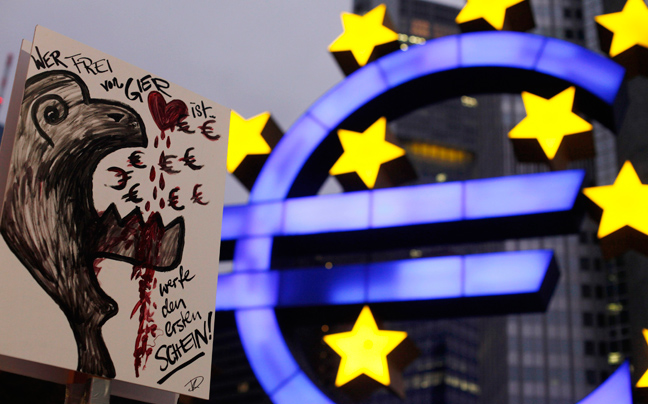 WER FREI von GIER ist..
werfe
den
ersten
SCHEIN!